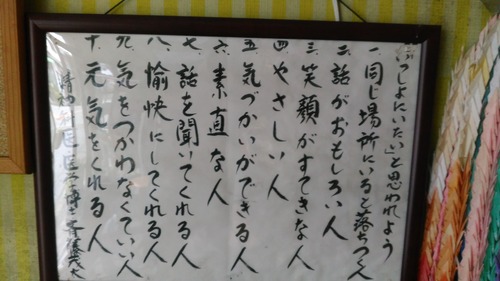 「いっしょにいたい」と思われよう
一 同じ場所にいると落ちつく人
二 話がおもしろい人
三 笑顔がすてきな人
四 やさしい人
五 気づかいができる人
六 素直な人
七 話を聞いてくれる人
八 愉快にしてくれる人
九 気をつかわなくていい人
十 元気をくれる人
精神科医 医学博士 斎藤茂太